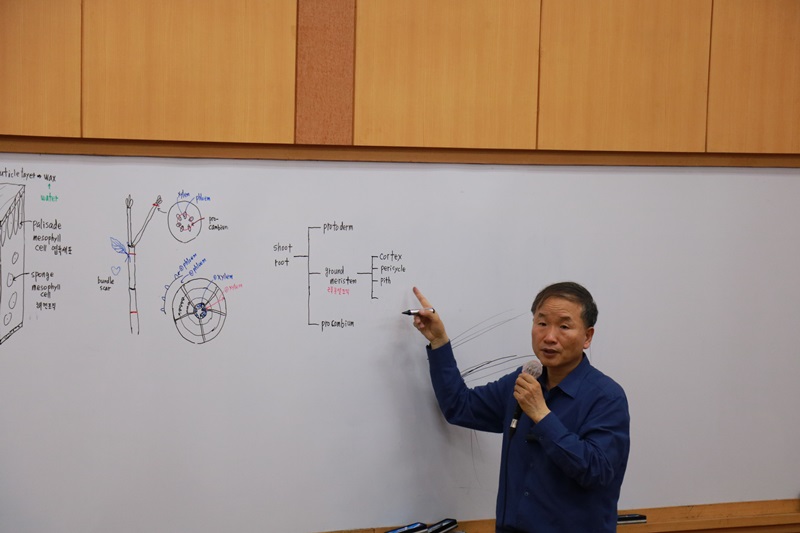 uticle layer = wax
water
palisade
mesophyll
cell
sponge
mesophyll
cell
bundle
scar
xylem
phloem
pro-
cambium
phloem
xylem
shoot
root
protoderm
ground
meristem
procambium
cortex
pericycle
pith